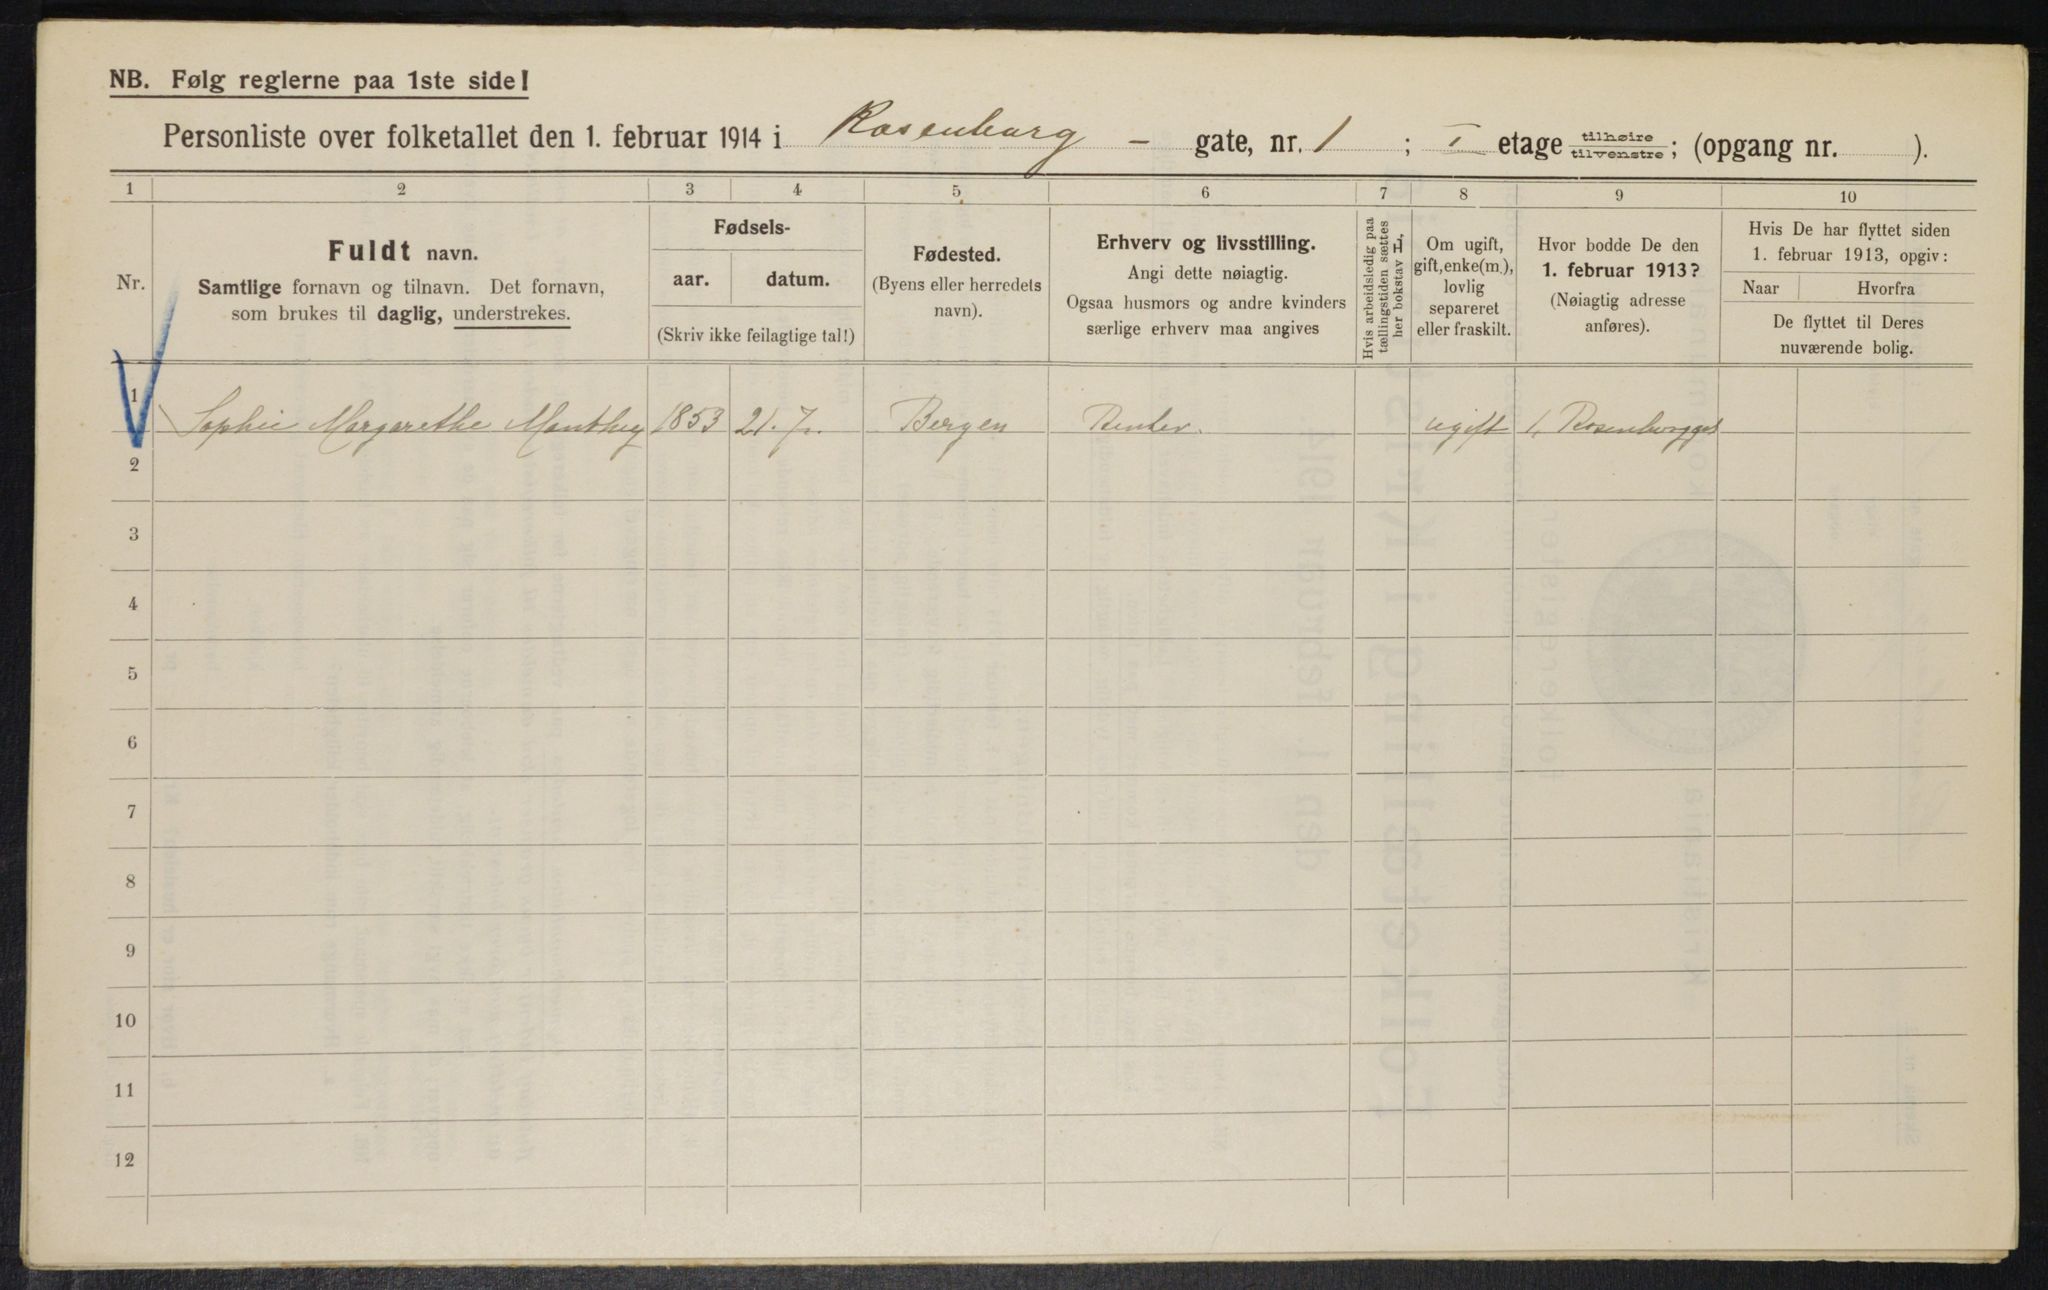 NB. Følg reglerne paa 1ste side!
Personliste over folketallet den 1. februar 1914 i Rosenborg - gate, nr. 1 ; I etage tilhøire tilvenstre ; (opgang nr. ).
1 2 3 4 5 6 7 8 9 10
Nr.
Fuldt navn.
Samtlige fornavn og tilnavn. Det fornavn,
som brukes til daglig, understrekes.
Fødsels-
aar. datum.
(Skriv ikke feilagtige tal!)
Fødested.
(Byens eller herredets
navn).
Erhverv og livsstilling.
Angi dette nøiagtig.
Ogsaa husmors og andre kvinders
særlige erhverv maa angives
Hvis arbeidsledig paa
tællingstiden sættes
her bokstav H.
Om ugift,
gift, enke(m.),
lovlig
separeret
eller fraskilt.
Hvor bodde De den
1. februar 1913?
(Nøiagtig adresse
anføres).
Hvis De har flyttet siden
1. februar 1913, opgiv:
Naar Hvorfra
De flyttet til Deres
nuværende bolig.
1 Sophie Margarethe Manthey 1853 21. 7. Bergen Renter. ugift 1, Rosenborggt
2
3
4
5
6
7
8
9
10
11
12